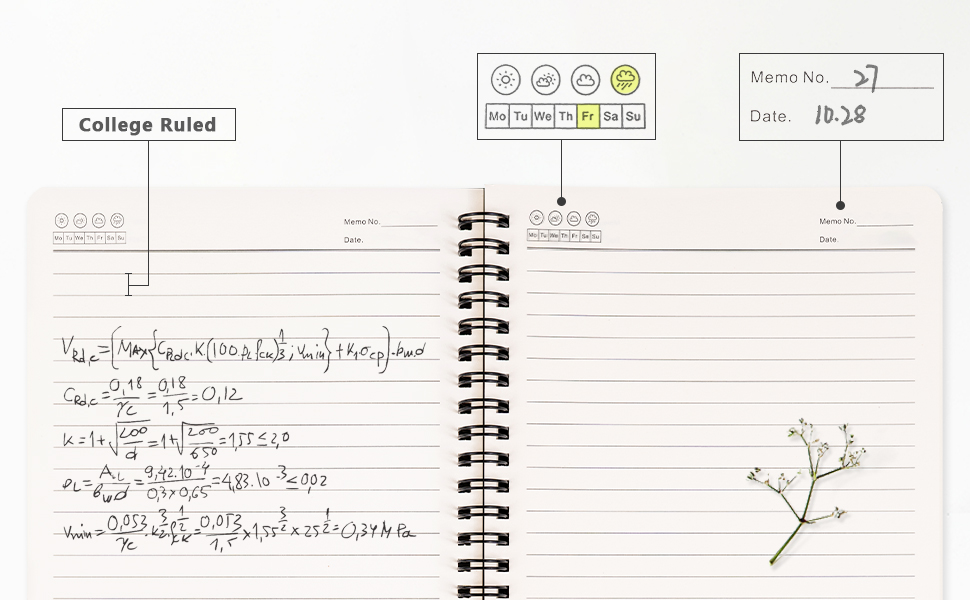 College Ruled
Mo Tu We Th Fr Sa Su
Memo No. 27
Date. 10.28
Memo No.
Mo Tu We Th Fr Sa Su
Date.
V_Rd,c = [MAX{C_Rd,c · K · (100 · ρL · fck)^1/3 ; Vmin} + K1 · σcp] · bw · d
C_Rd,c = 0,18/γc = 0,18/1,5 = 0,12
K = 1 + √(200/d) = 1 + √(200/650) = 1,55 ≤ 2,0
ρL = AL/(bw d) = 9,42.10^-4/(0,3 × 0,65) = 4,83.10^-3 ≤ 0,02
Vmin = 0,053/γc · K^3/2 · fck^1/2 = 0,053/1,5 × 1,55^3/2 × 25^1/2 = 0,34 MPa
Memo No.
Mo Tu We Th Fr Sa Su
Date